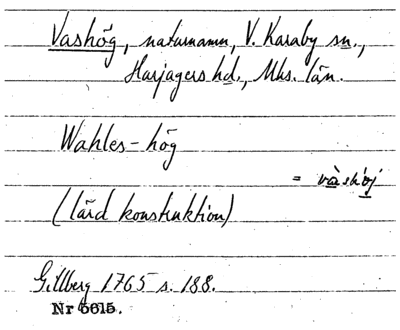 Vashög, naturnamn, V. Karaby sn.,
Harjagers hd., Mhs. län.
Wahles-hög
= vàshöj
(lärd konstruktion)
Gillberg 1765 s. 188.
Nr 6615.